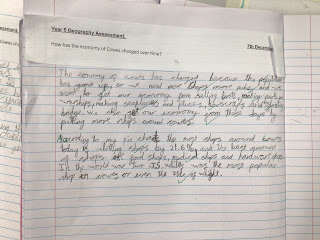 Year 5 Geography Assessment
7th December
How has the economy of Cowes changed over time?
The economy of cowes has changed because the population
has grown up, so we need more shops more and we
used to get our economy from selling boats, making
making seaplanes and planes,
badge. we also get our economy from these days by
putting more shops around cowes.
According to my pie chart the most shops around cowes
today is clothing shops by 21.6% but the least amount
of shops is food shops, medical shops and hardware
In the world war two J.S. white's was the most popular
shop in cowes or even the isle of wight.